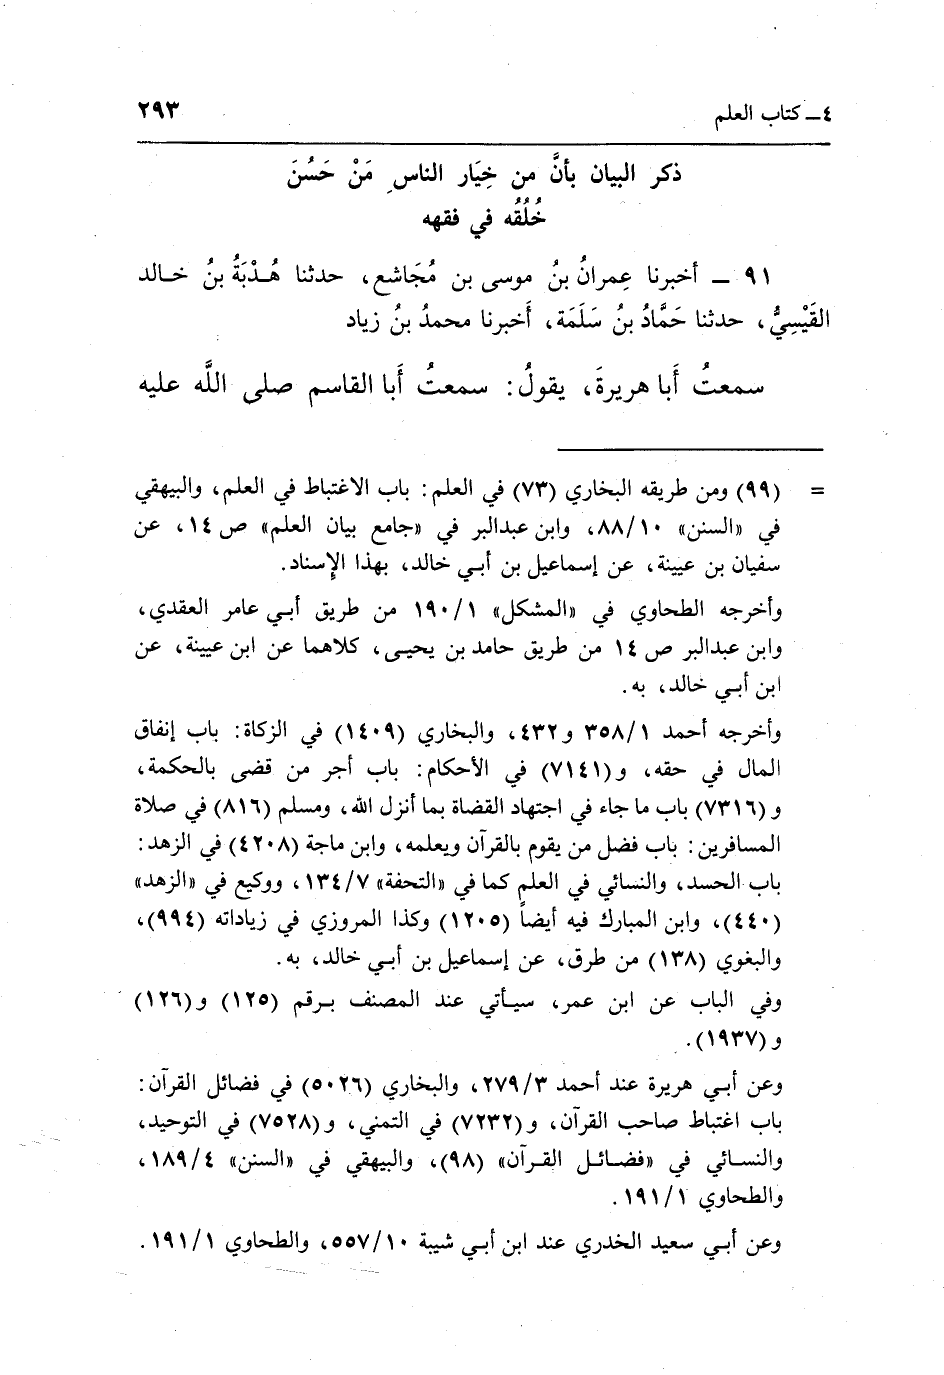 ٤ـ كتاب العلم ٢٩٣
ذكر البيان بأنَّ من خِيَار الناسِ مَنْ حَسُنَ
خُلُقُه في فقهه
٩١ ـ أخبرنا عِمرانُ بنُ موسى بن مُجَاشع، حدثنا هُـدْبَةُ بنُ خـالد
القَيْسِيُّ، حدثنا حَمَّادُ بنُ سَلَمَة، أَخبرنا محمدُ بنُ زياد
سمعتُ أَبا هريرةَ، يقولُ: سمعتُ أَبا القاسم صلى اللَّه عليه
= (٩٩) ومن طريقه البخاري (٧٣) في العلم: باب الاغتباط في العلم، والبيهقي
في «السنن» ٨٨/١٠، وابن عبدالبر في «جامع بيان العلم» ص ١٤، عن
سفيان بن عيينة، عن إسماعيل بن أبـي خالد، بهذا الإِسناد.
وأخرجه الطحاوي في «المشكل» ١٩٠/١ من طريق أبـي عامر العقدي،
وابن عبدالبر ص ١٤ من طريق حامد بن يحيـى، كلاهما عن ابن عيينة، عن
ابن أبـي خالد، به.
وأخرجه أحمد ٣٥٨/١ و٤٣٢، والبخاري (١٤٠٩) في الزكاة: باب إنفاق
المال في حقه، و(٧١٤١) في الأحكام: باب أجر من قضى بالحكمة،
و(٧٣١٦) باب ما جاء في اجتهاد القضاة بما أنزل الله، ومسلم (٨١٦) في صلاة
المسافرين: باب فضل من يقوم بالقرآن ويعلمه، وابن ماجة (٤٢٠٨) في الزهد:
باب الحسد، والنسائي في العلم كما في «التحفة» ١٣٤/٧، ووكيع في «الزهد»
(٤٤٠)، وابن المبارك فيه أيضاً (١٢٠٥) وكذا المروزي في زياداته (٩٩٤)،
والبغوي (١٣٨) من طرق، عن إسماعيل بن أبـي خالد، به.
وفي الباب عن ابن عمر، سيـأتي عند المصنف بـرقم (١٢٥) و(١٢٦)
و(١٩٣٧).
وعن أبـي هريرة عند أحمد ٢٧٩/٣، والبخاري (٥٠٢٦) في فضائل القرآن:
باب اغتباط صاحب القرآن، و(٧٢٣٢) في التمني، و(٧٥٢٨) في التوحيد،
والنسـائي في «فضـائـل القـرآن» (٩٨)، والبيهقي في «السنن» ١٨٩/٤،
والطحاوي ١٩١/١.
وعن أبـي سعيد الخدري عند ابن أبـي شيبة ٥٥٧/١٠، والطحاوي ١٩١/١.